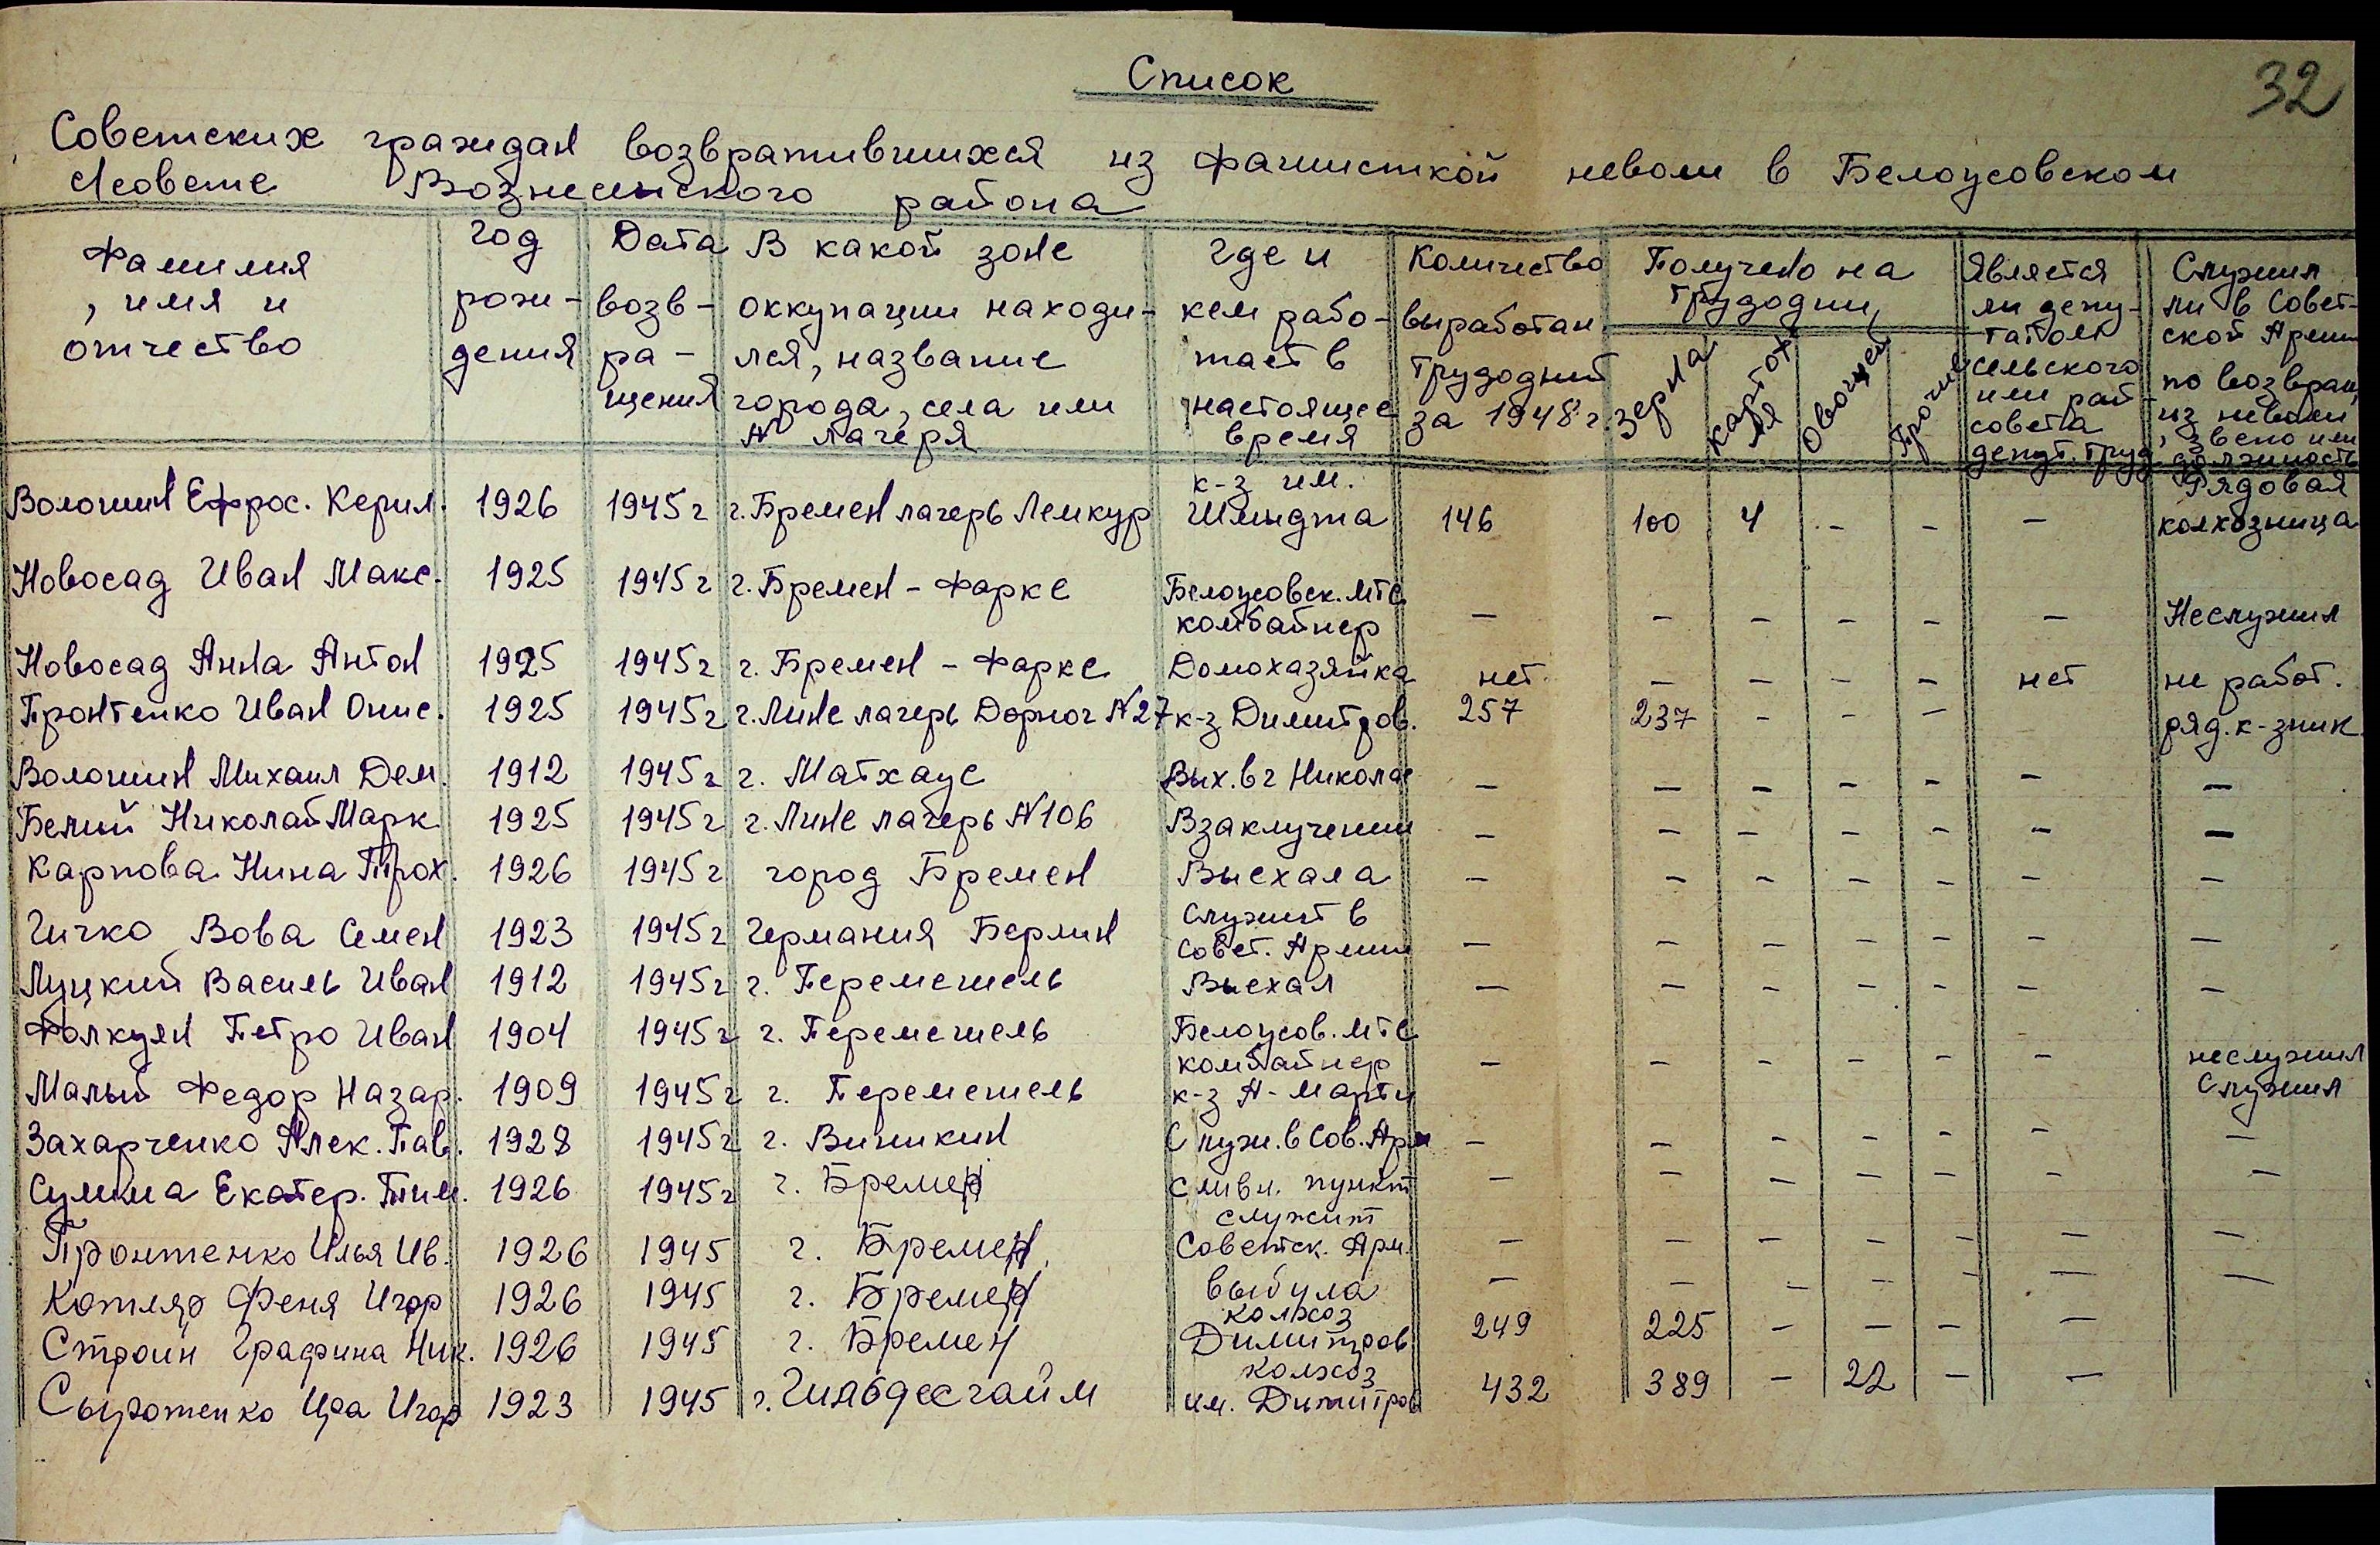 Список
32
Советских граждан возвратившихся из фашисткой неволи в Белоусовском
с/совете Вознесенского района
Фамилия, имя и отчество | Год рождения | Дата возвращения | В какой зоне оккупации находился, название города, села или № лагеря | Где и кем работает в настоящее время | Количество выработан. трудодней за 1948 г. | Получено на трудодни: зерна | картофля | Овощей | Прочие | Является ли депутатом сельского или рай-совета депут. труд. | Служил ли в Советской Армии по возвращ. из неволи, звено или должность
Волошин Ефрос. Керил. 1926 1945 г г. Бремен лагерь Лемкур к-з им. Шмидта 146 100 4 - - - Рядовая колхозница
Новосад Иван Макс. 1925 1945 г г. Бремен - Фарке Белоусовск. МТС комбайнер - - - - - - Неслужил
Новосад Анна Антон 1925 1945 г г. Бремен - Фарке Домохазяйка нет. - - - - нет не работ.
Пронтенко Иван Онис. 1925 1945 г г. Лине лагерь Дорног №27 к-з Димитров. 257 237 - - - ряд. к-зник
Волошин Михаил Дем. 1912 1945 г г. Матхаус Вых. в г Николае - - - - - - -
Белий Николай Марк 1925 1945 г г. Лине лагерь №106 Взаключении - - - - - - -
Карпова Нина Прох. 1926 1945 г город Бремен Выехала - - - - - - -
Гичко Вова Семен 1923 1945 г Германия Берлин Служит в Совет. Армии - - - - - - -
Луцкий Василь Иван 1912 1945 г г. Перемешель Выехал - - - - - - -
Фолкуян Петро Иван 1904 1945 г г. Перемешель Белоусов. МТС комбайнер - - - - - - неслужил
Малый Федор Назар. 1909 1945 г г. Перемешель к-з А-Марти Служил
Захарченко Алек. Пав. 1928 1945 г г. Виникин Служ. в Сов. Арм - - - - - - -
Сумма Екатер. Тим. 1926 1945 г г. Бремен Сливн. пункт - - - - - - -
Пронтенко Илья Ив. 1926 1945 г. Бремен служит Советск. Арм. - - - - - - -
Котляр Феня Игор 1926 1945 г. Бремен выбула - - - - - - -
Строин Графина Ник. 1926 1945 г. Бремен колхоз Димитров 249 225 - - - -
Сыротенко Ира Игор 1923 1945 г. Гильдесгайм колхоз им. Димитров 432 389 - 22 - -